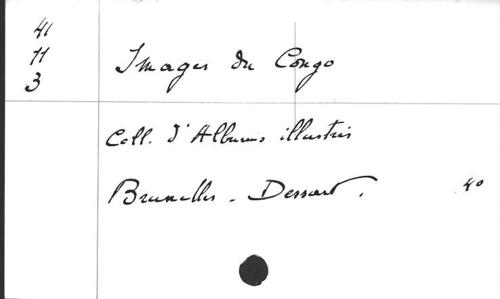 41
11
3
Images du Congo
Coll. d'Albums illustrés
Bruxelles - Dessart. 4º